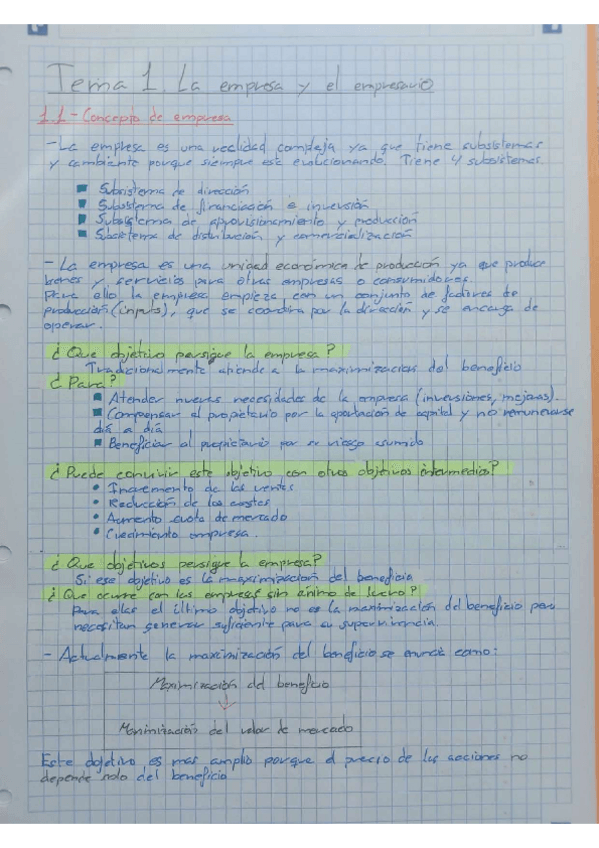 Tema 1. La empresa y el empresario
1.1 - Concepto de empresa
- La empresa es una realidad compleja ya que tiene subsistemas
y cambiante porque siempre está evolucionando. Tiene 4 subsistemas.
Subsistema de dirección
Subsistema de financiación e inversión
Subsistema de aprovisionamiento y producción
Subsistema de distribución y comercialización
- La empresa es una unidad económica de producción ya que produce
bienes y servicios para otras empresas o consumidores.
Para ello la empresa empieza con un conjunto de factores de
producción (inputs), que se coordina por la dirección y se encarga de
operar.
¿Que objetivo persigue la empresa?
Tradicionalmente atiende a la maximización del beneficio
¿Para?
Atender nuevas necesidades de la empresa (inversiones, mejoras).
Compensar al propietario por la aportación de capital y no remunerarse
día a día
Beneficiar al propietario por su riesgo asumido
¿Puede convivir este objetivo con otros objetivos intermedios?
Incremento de las ventas
Reducción de los costes
Aumento cuota de mercado
Crecimiento empresa.
¿Que objetivos persigue la empresa?
Si ese objetivo es la maximización del beneficio
¿Que ocurre con las empresas sin ánimo de lucro?
Para ellas el último objetivo no es la maximización del beneficio pero
necesitan generar suficiente para su supervivencia.
- Actualmente la maximización del beneficio se enuncia como:
Maximización del beneficio
↓
Maximización del valor de mercado
Este objetivo es mas amplio porque el precio de las acciones no
depende solo del beneficio